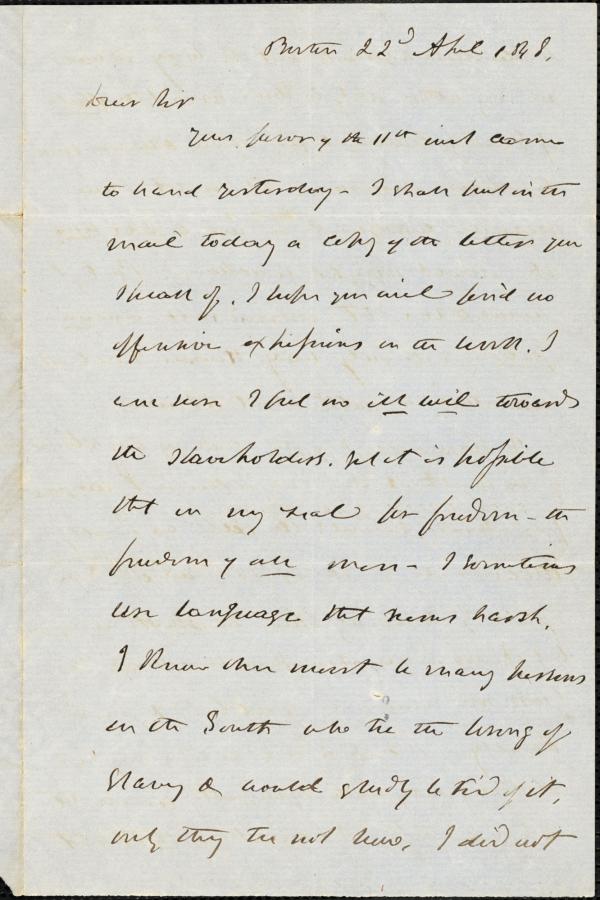 Boston 22d April 1848.
Dear Sir
Your favor of the 11th inst came
to hand yesterday - I shall put in the
mail today a copy of the letter you
speak of. I hope you will find no
offensive expressions in the work. I
am sure I feel no ill will towards
the slaveholders. yet it is possible
that in my zeal for freedom - the
freedom of all men - I sometimes
use language that seems harsh.
I know there must be many persons
in the South who see the wrong of
slavery & would gladly be rid of it,
only they see not how. I did not